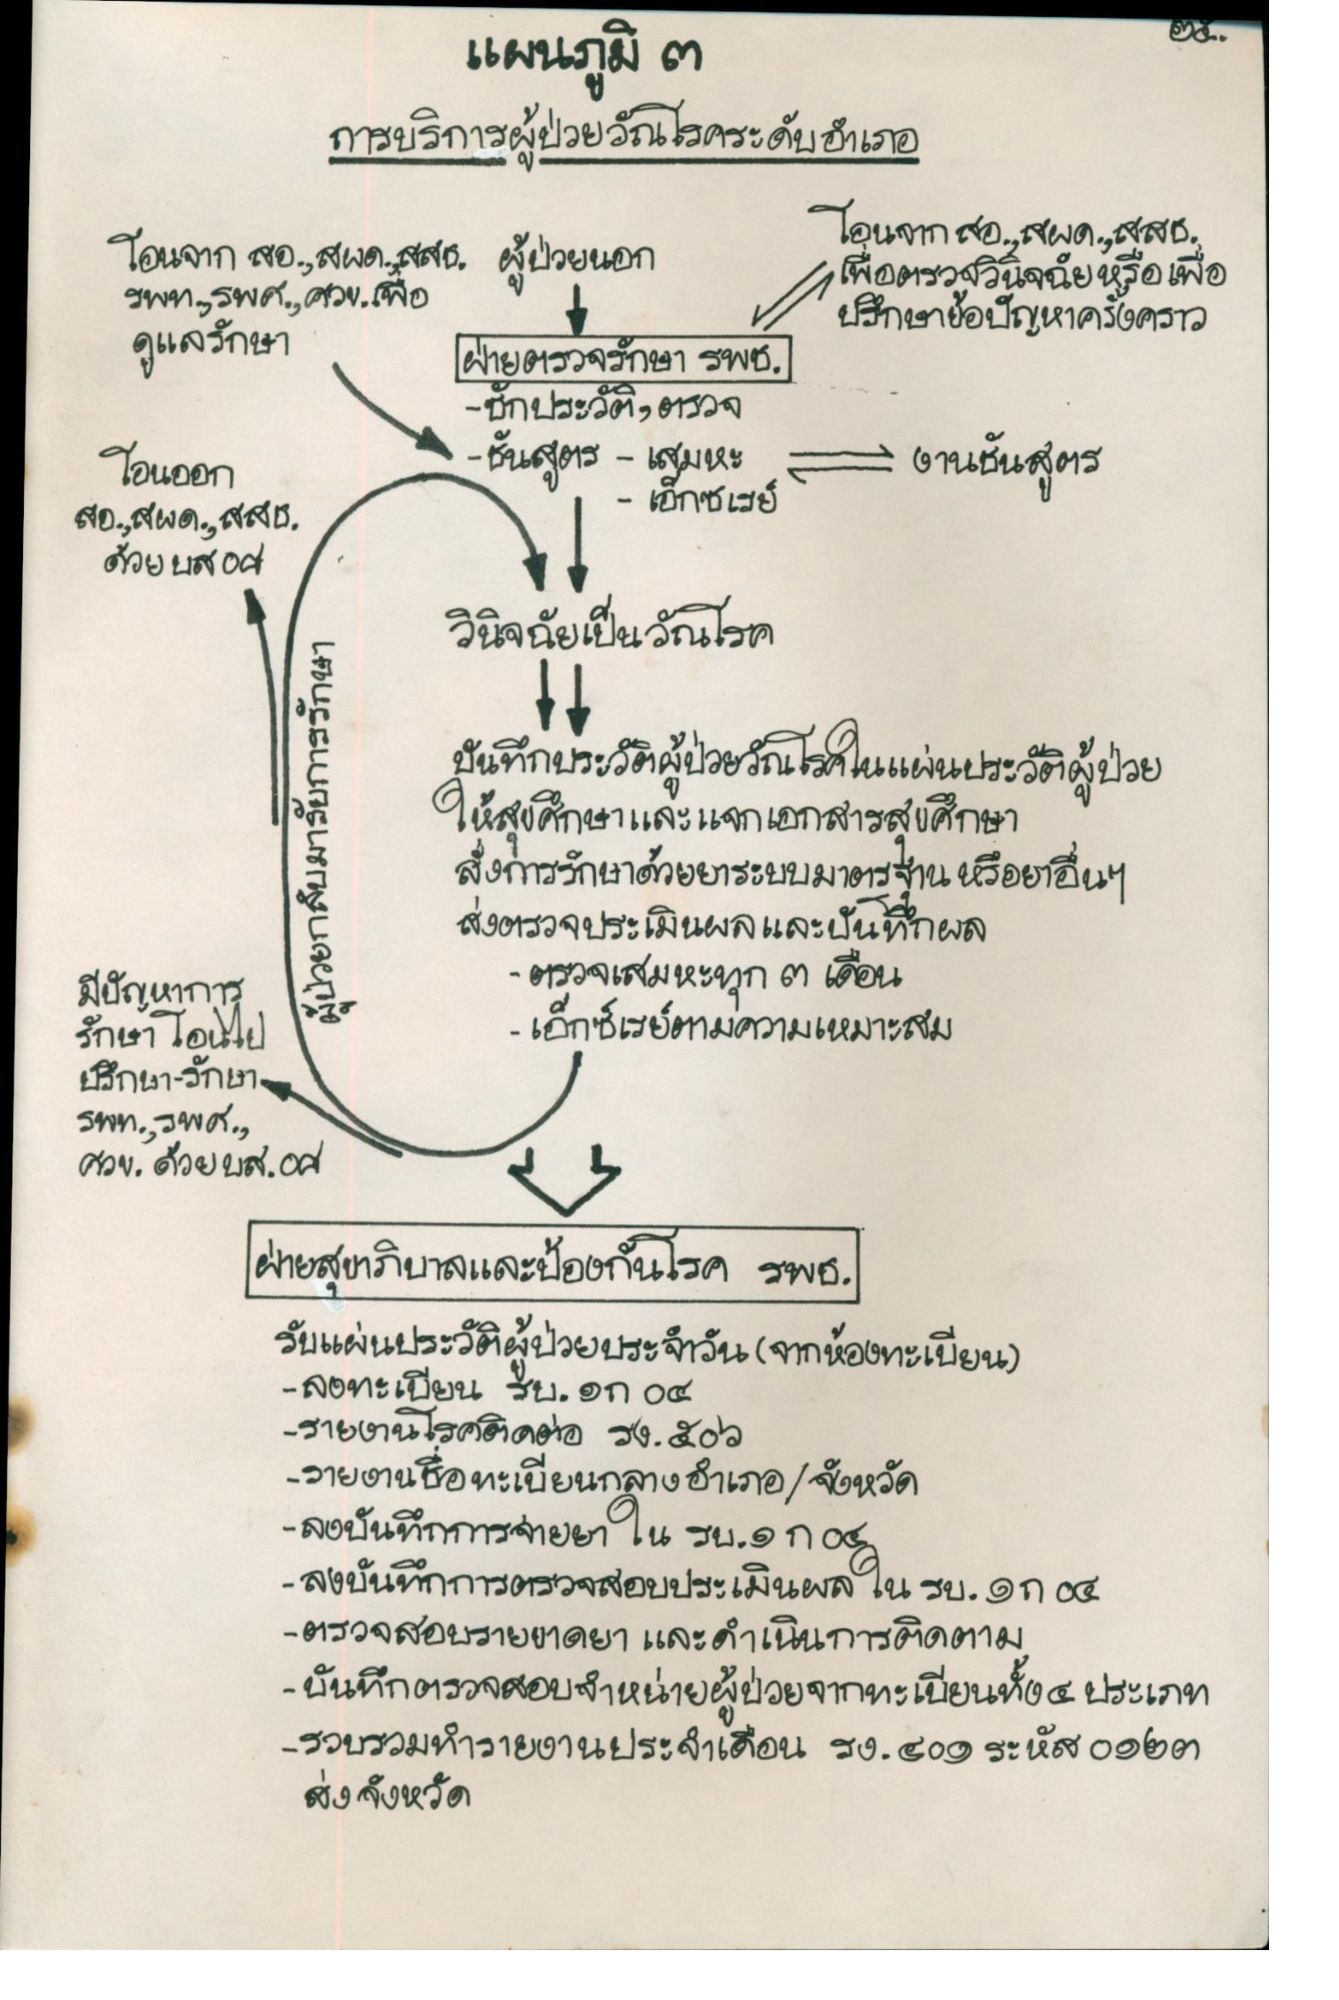 แผนภูมิ ๓
การบริการผู้ป่วยวัณโรคระดับอำเภอ
โอนจาก สอ.,สผด.,สสธ.
รพท.,รพศ.,ศวข.เพื่อ
ดูแลรักษา
ผู้ป่วยนอก
โอนจาก สอ.,สผด.,สสธ.
เพื่อตรวจวินิจฉัยหรือเพื่อ
ปรึกษาข้อปัญหาครั้งคราว
ฝ่ายตรวจรักษา รพช.
-ซักประวัติ,ตรวจ
-ชันสูตร - เสมหะ
- เอ็กซเรย์
งานชันสูตร
โอนออก
สอ.,สผด.,สสธ.
ด้วย บส ๐๘
วินิจฉัยเป็นวัณโรค
ผู้ป่วยกลับมารับการรักษา
บันทึกประวัติผู้ป่วยวัณโรคในแผ่นประวัติผู้ป่วย
ให้สุขศึกษาและแจกเอกสารสุขศึกษา
สั่งการรักษาด้วยยาระบบมาตรฐาน หรือยาอื่นๆ
ส่งตรวจประเมินผลและบันทึกผล
-ตรวจเสมหะทุก ๓ เดือน
-เอ็กซ์เรย์ตามความเหมาะสม
มีปัญหาการ
รักษา โอนไป
ปรึกษา-รักษา
รพท.,รพศ.,
ศวข. ด้วย บส.๐๘
ฝ่ายสุขาภิบาลและป้องกันโรค รพช.
รับแผ่นประวัติผู้ป่วยประจำวัน (จากห้องทะเบียน)
-ลงทะเบียน รบ. ๑ก ๐๔
-รายงานโรคติดต่อ รง. ๕๐๖
-รายงานชื่อทะเบียนกลางอำเภอ/จังหวัด
-ลงบันทึกการจ่ายยา ใน รบ. ๑ ก ๐๔
-ลงบันทึกการตรวจสอบประเมินผล ใน รบ. ๑ก ๐๔
-ตรวจสอบรายขาดยา และดำเนินการติดตาม
-บันทึกตรวจสอบจำหน่ายผู้ป่วยจากทะเบียนทั้ง ๔ ประเภท
-รวบรวมทำรายงานประจำเดือน รง. ๔๐๑ ระหัส ๐๑๒๓
ส่งจังหวัด